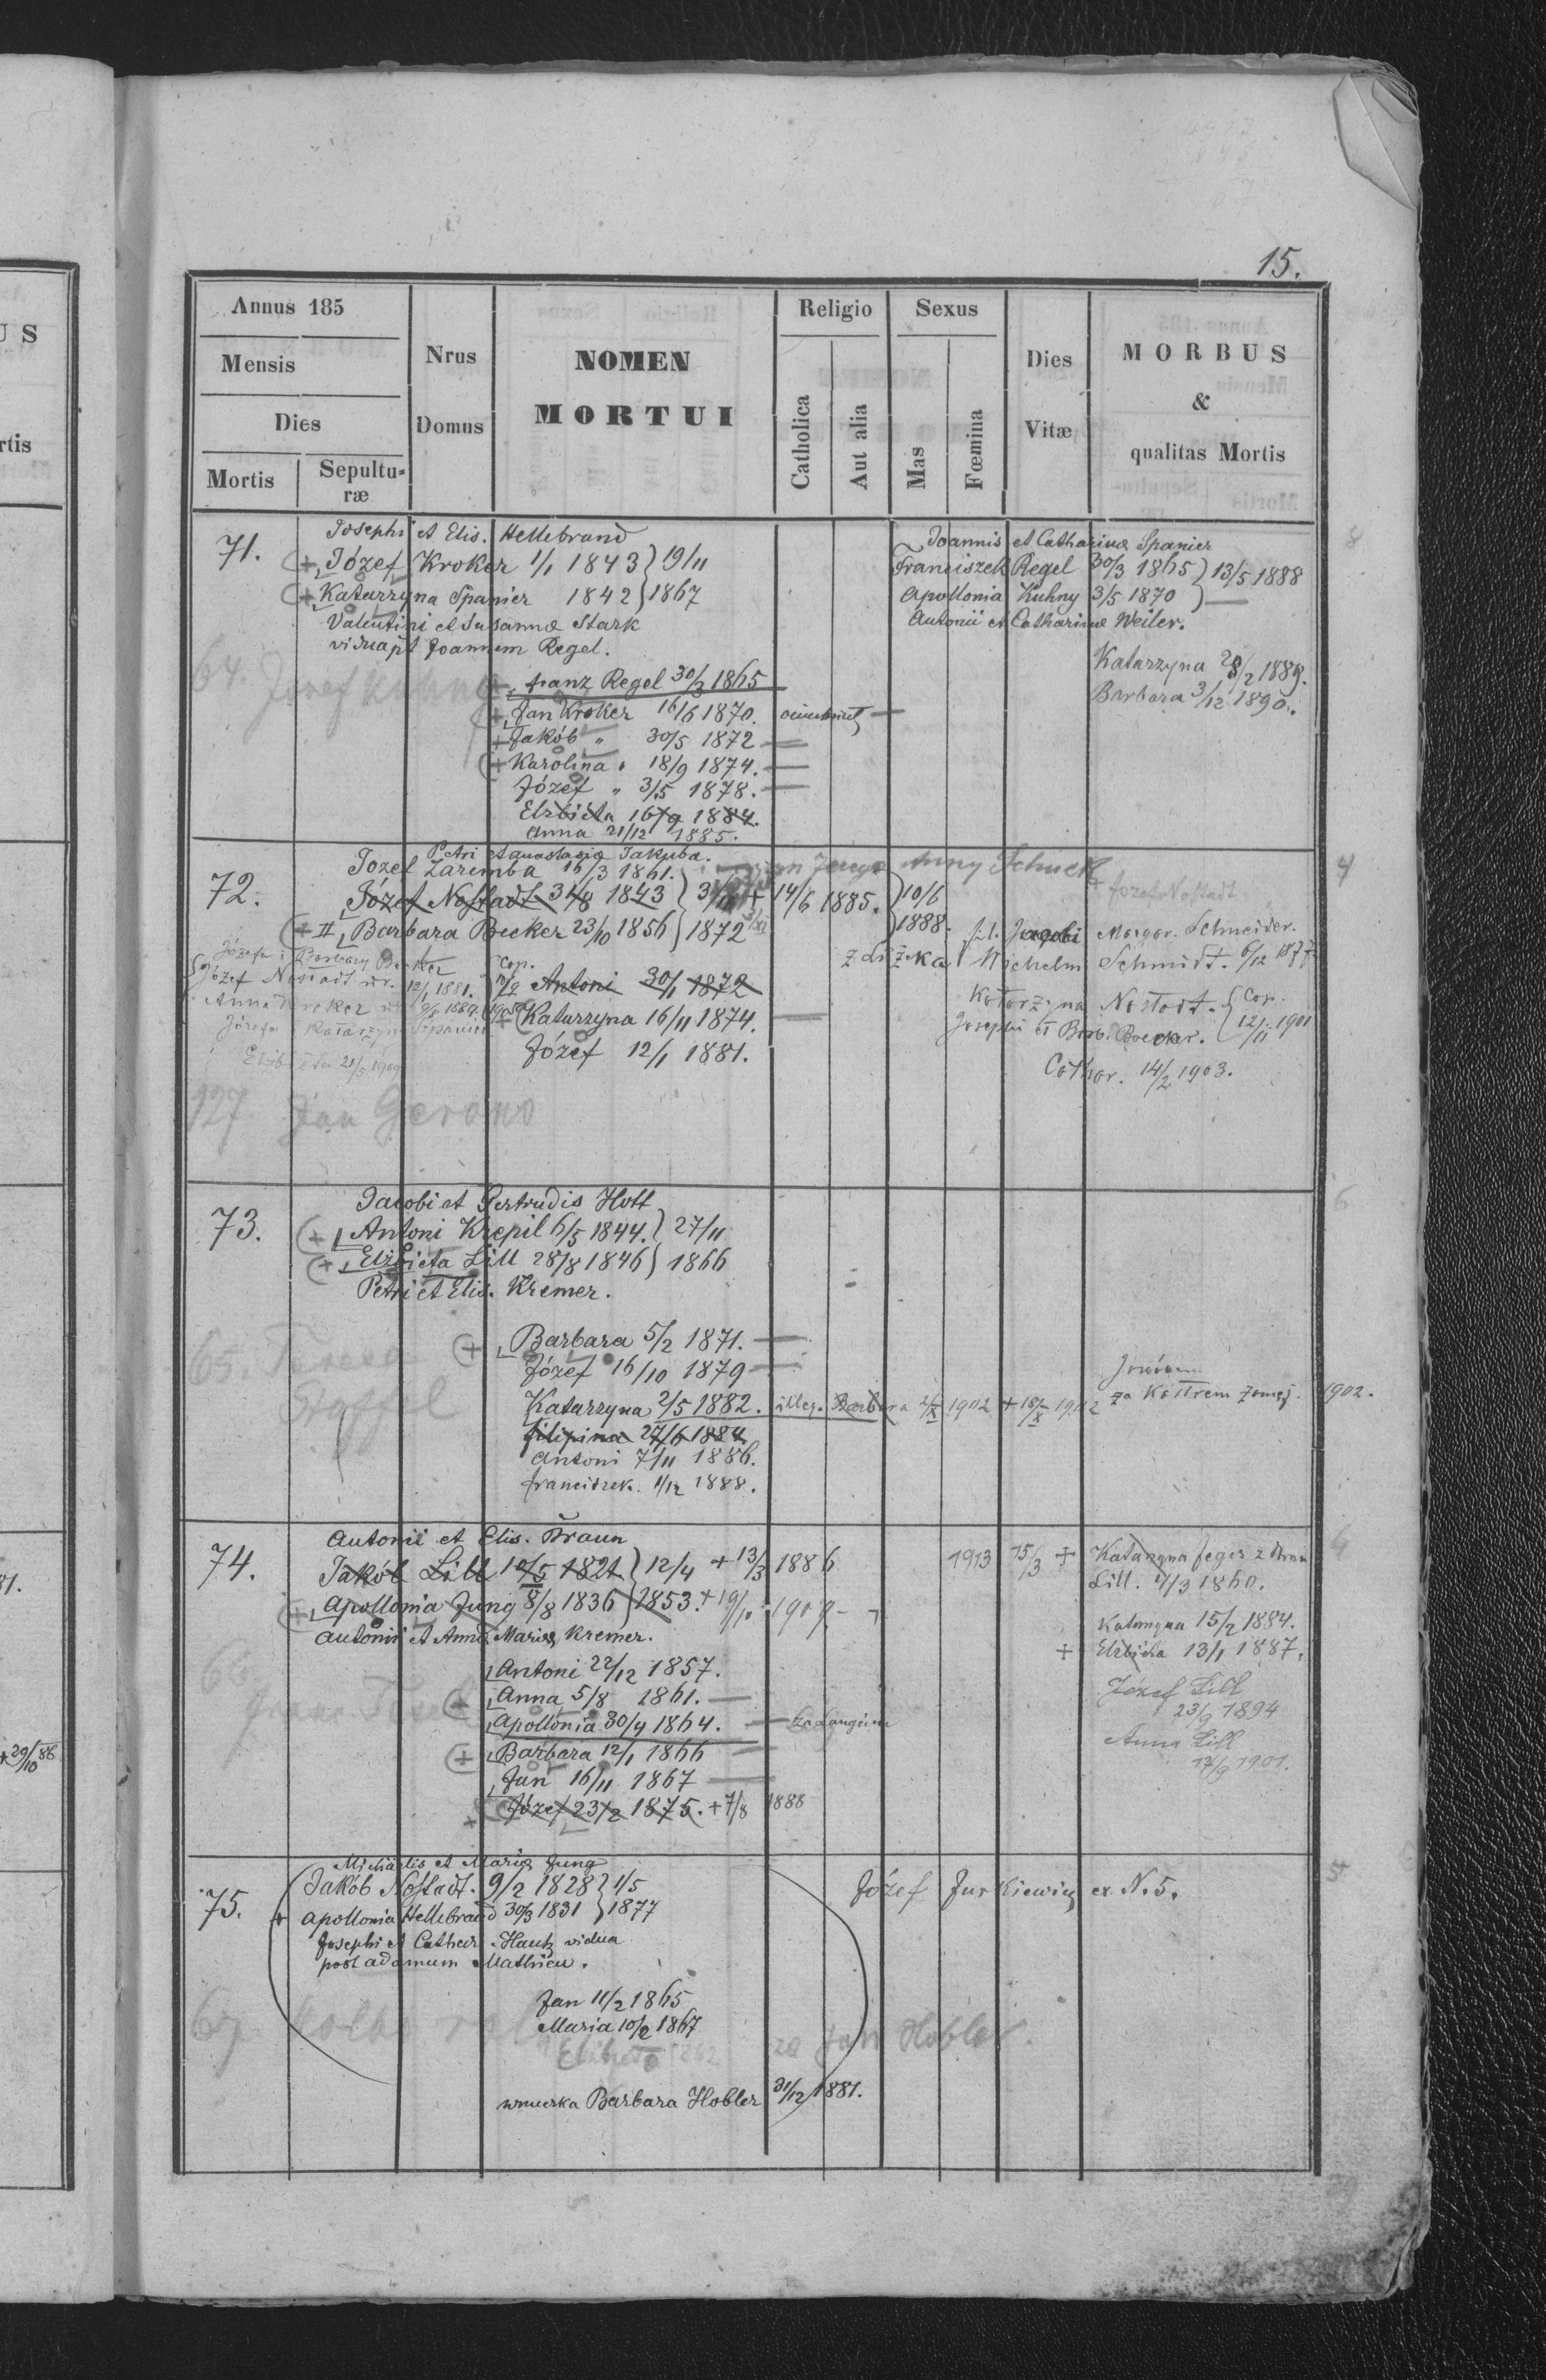 15.
Annus 185
Mensis
Dies
Mortis
Sepultu-
ræ
Nrus
Domus
NOMEN
MORTUI
Religio
Catholica
Aut alia
Sexus
Mas
Fœmina
Dies
Vitæ
MORBUS
&
qualitas Mortis
71.
Josephi et Elis. Hellebrand
+ Józef Kroker 1/1 1843 } 19/11
+ Katarzyna Spanier 1842 } 1867
Valentini et Susannæ Stark
vidua pt Joannem Regel.
64. Josef Kuhny
+ franz Regel 30/3 1865
+ Jan Kroker 16/6 1870.
+ Jakób " 30/5 1872
+ Karolina " 18/9 1874.
Józef " 3/5 1878.
Elżbieta 16/9 1884.
Anna 21/12 1885.
Joannis et Catharinæ Spanier
Franciszek Regel 30/3 1865 } 13/5 1888
Apollonia Kuhny 3/5 1870 }
Antonii et Catharinæ Weiler.
Katarzyna 28/2 1889.
Barbara 3/12 1890.
8
72.
Petri et Anastasiæ Jakuba.
Jozef Zaremba 16/3 1861.
Anny Schuck
Józef Nostadt 31/8 1843 } + 14/6 1885. } 10/6
+ II Barbara Becker 23/10 1856 } 1872 1888.
Józefa i Barbary Becker
Józef Nostadt ur. 12/1 1881.
Anna Kroker
Józefa i Katarzyny Spanier
21/5 1909
cop.
Antoni 30/1 1872
+ Katarzyna 16/11 1874.
Józef 12/1 1881.
127 Jan Gerono
+ Jozef Nostadt
fil. Jacobi Margar. Schneider.
Wichelm Schmidt. 6/12 1877
Katarzyna Nostadt. { Cop.
Josephi et Barb. Becker. { 12/11 1901
Cathar. 14/2 1903.
4
73.
Jacobi et Gertrudis Hott
+ Antoni Krepil 6/5 1844. } 27/11
+ Elżbieta Lill 28/8 1846 } 1866
Petri et Elis. Kremer.
65. Teresa
+ Barbara 5/2 1871.
Józef 16/10 1879
Katarzyna 2/5 1882. illeg. Barbara 2/X 1902 + 18/X 1902
filipina 27/6 1884
Antoni 7/11 1886.
franciszek. 1/12 1888.
za Kostrem zamęż. 1902.
6
74.
Antonii et Elis. Braun
Jakób Lill 10/5 1821 } 12/4 + 13/3 1886
+ Apollonia Jung 8/8 1836 } 1853. + 19/10 1907
Antonii et Annæ Mariæ Kremer.
66.
Antoni 22/12 1857.
Anna 5/8 1861.
Apollonia 30/4 1864.
+ Barbara 12/1 1866
Jan 16/11 1867
Józef 23/2 1875. + 7/8 1888
1913 15/3 + Katarzyna feger z
Lill. 4/3 1860.
Katarzyna 15/2 1884.
+ Elżbieta 13/1 1887.
Józef Lill
23/9 1894
Anna Lill
17/9 1901.
75.
Michaelis et Mariæ Jung
Jakób Nostadt. 9/2 1828 } 1/5
+ Apollonia Hellebrand 30/3 1831 } 1877
Josephi et Cathar. Hautz vidua
post Adamum Mathieu.
67.
Jan 11/2 1865
Maria 10/2 1867
Elżbieta 1862 za Jan Hobler.
wnuczka Barbara Hobler 31/12 1881.
Józef Jurkiewicz ex N. 5.
5
U S
rtis
81.
+ 29/10 86